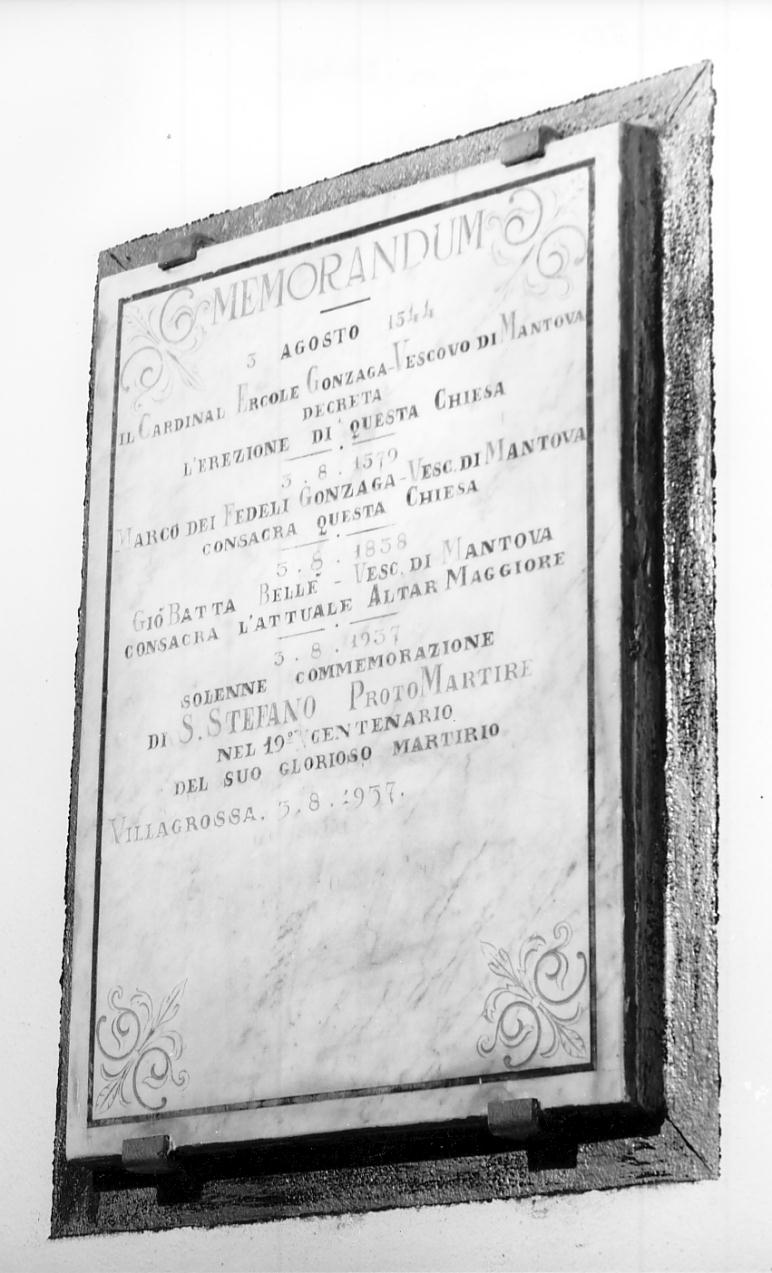 MEMORANDUM
3 AGOSTO 1544
IL CARDINAL ERCOLE GONZAGA-VESCOVO DI MANTOVA
DECRETA
L'EREZIONE DI QUESTA CHIESA
3.8.1579
MARCO DEI FEDELI GONZAGA-VESC. DI MANTOVA
CONSACRA QUESTA CHIESA
3.8.1838
GIÒ BATTA BELLÈ - VESC. DI MANTOVA
CONSACRA L'ATTUALE ALTAR MAGGIORE
3.8.1937
SOLENNE COMMEMORAZIONE
DI S. STEFANO PROTOMARTIRE
NEL 19º CENTENARIO
DEL SUO GLORIOSO MARTIRIO
VILLAGROSSA. 3.8.1937.